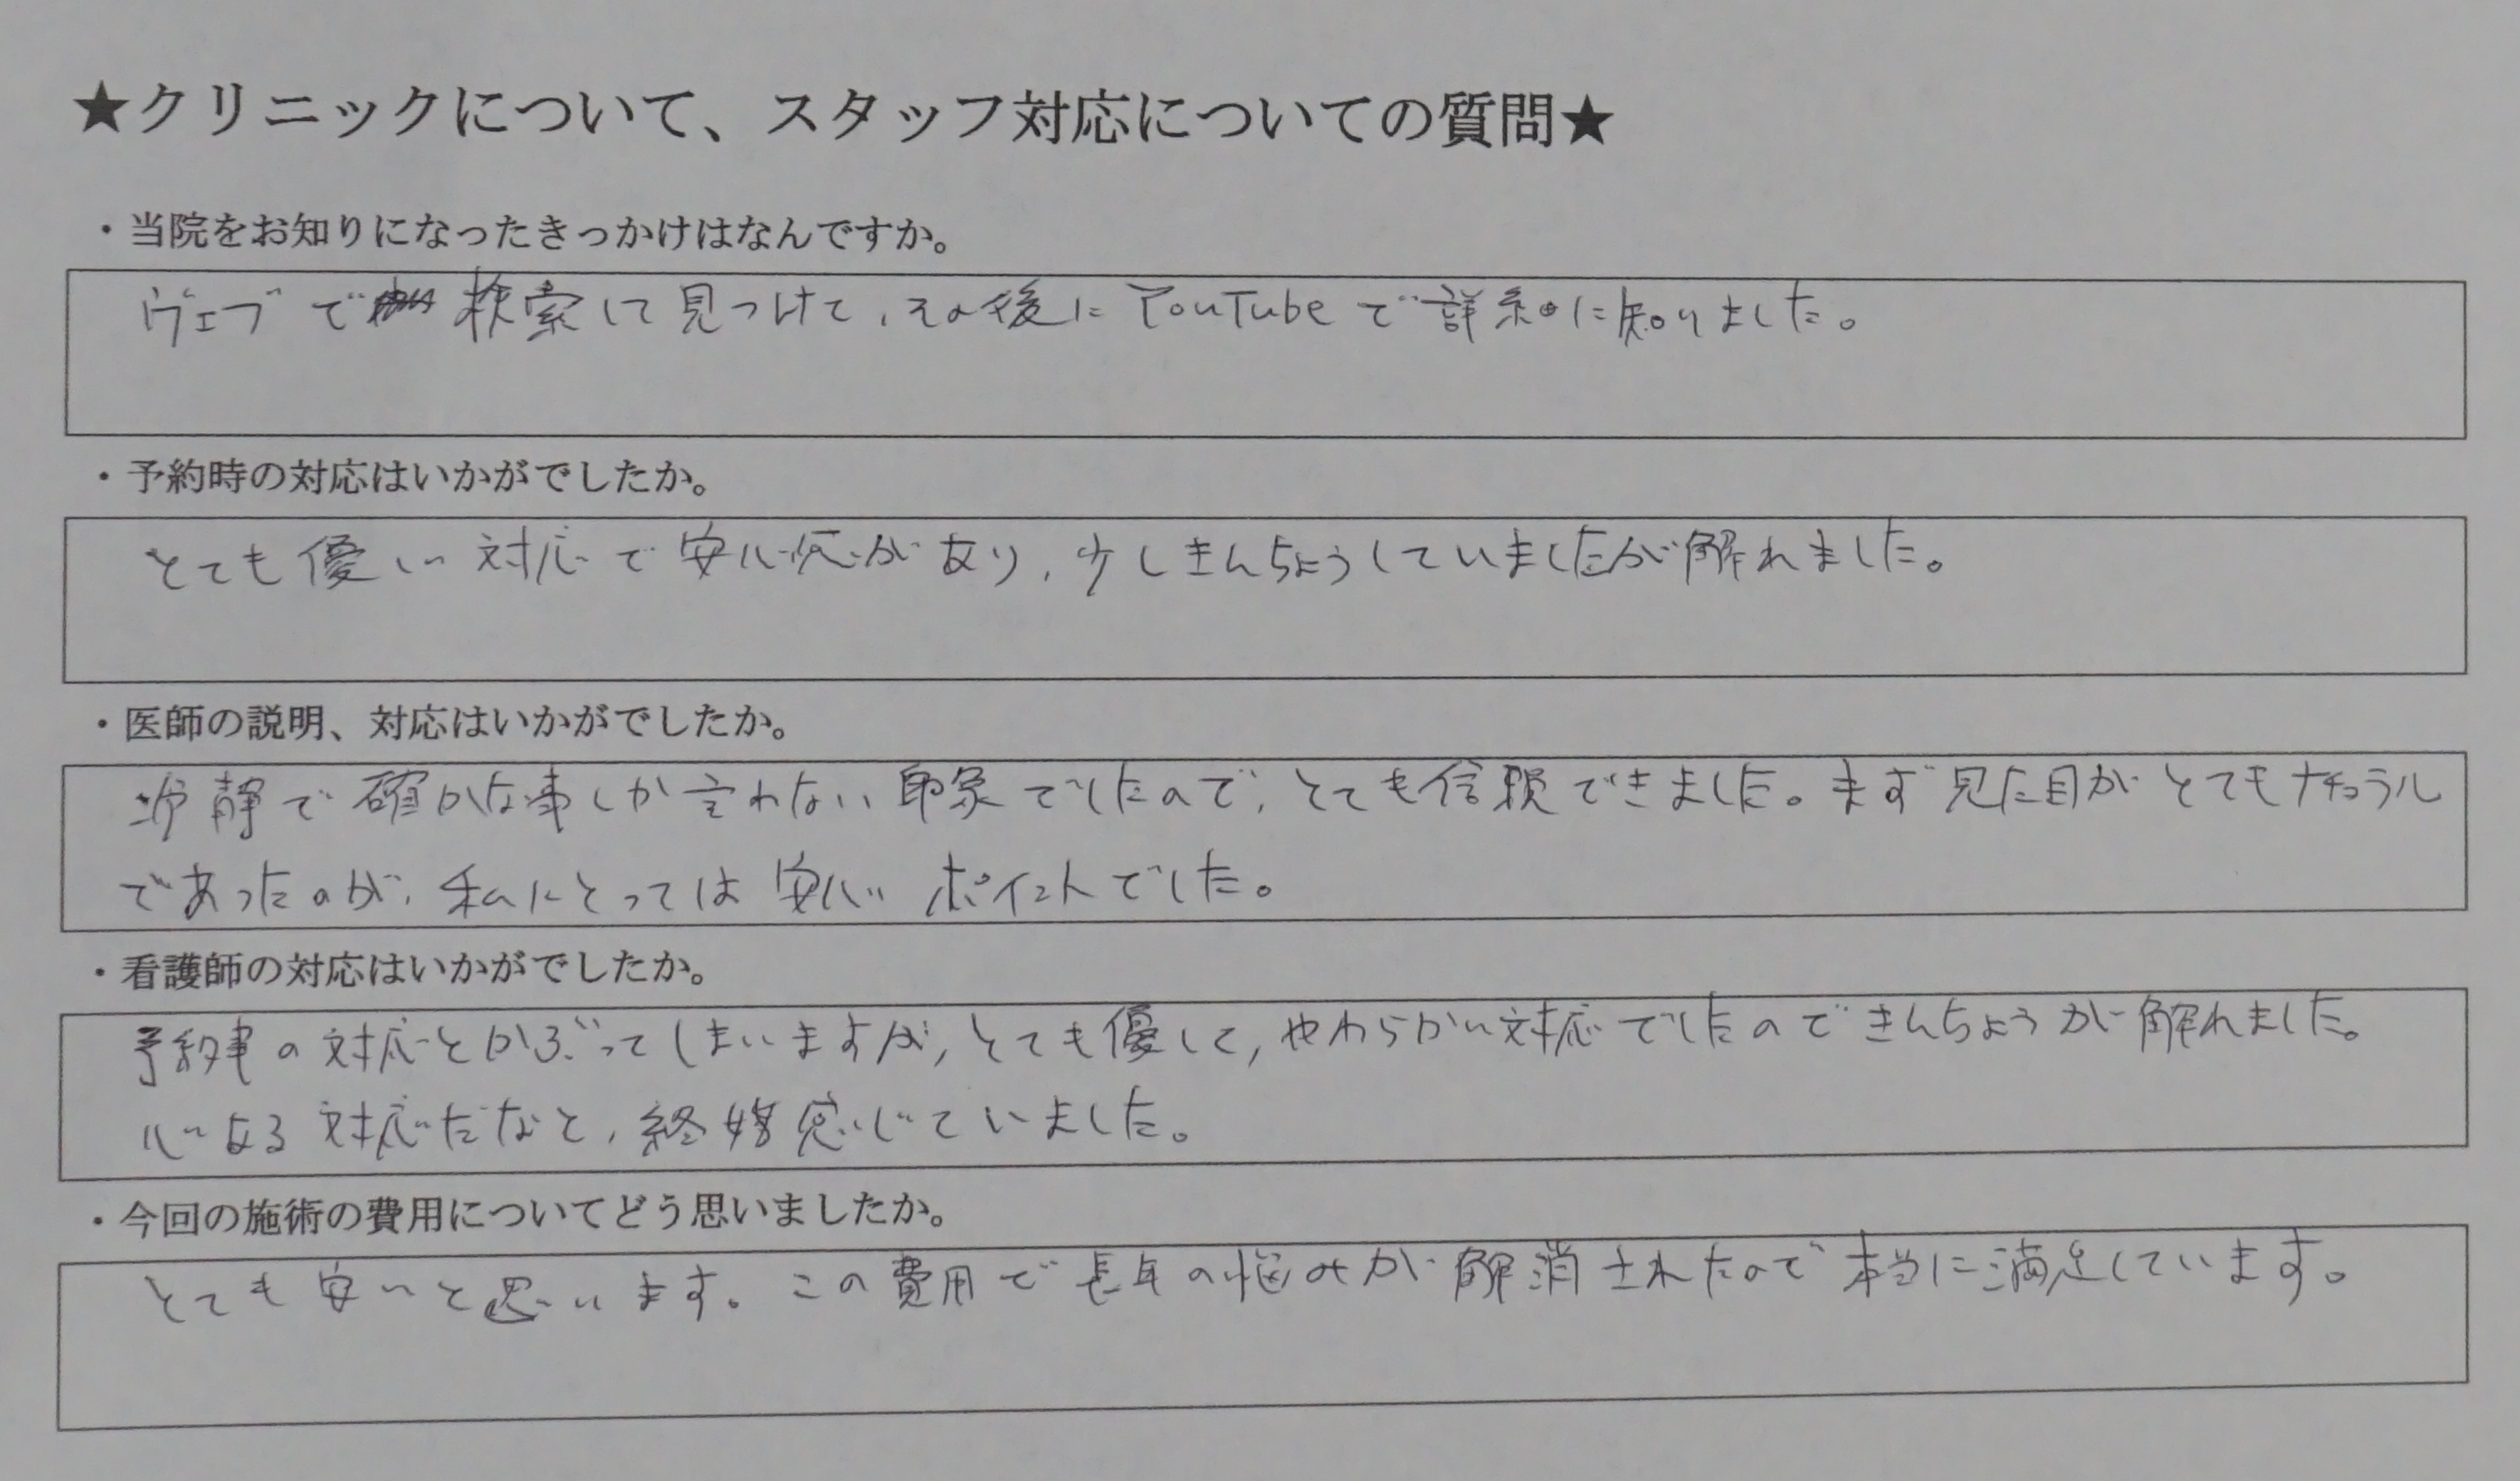 ★クリニックについて、スタッフ対応についての質問★
・当院をお知りになったきっかけはなんですか。
ヴェブで検索して見つけて、その後にYouTubeで詳細に知りました。
・予約時の対応はいかがでしたか。
とても優しい対応で安心感があり、少しきんちょうしていましたが解れました。
・医師の説明、対応はいかがでしたか。
冷静で確かな事しか言わない印象でしたので、とても信頼できました。まず見た目がとてもナチュラル
であったのが、私にとっては安心ポイントでした。
・看護師の対応はいかがでしたか。
予約事の対応とかぶってしまいますが、とても優しく、やわらかい対応でしたのできんちょうが解れました。
心ある対応だなと、終始感じていました。
・今回の施術の費用についてどう思いましたか。
とても安いと思います。この費用で長年の悩みが解消されたので本当に満足しています。